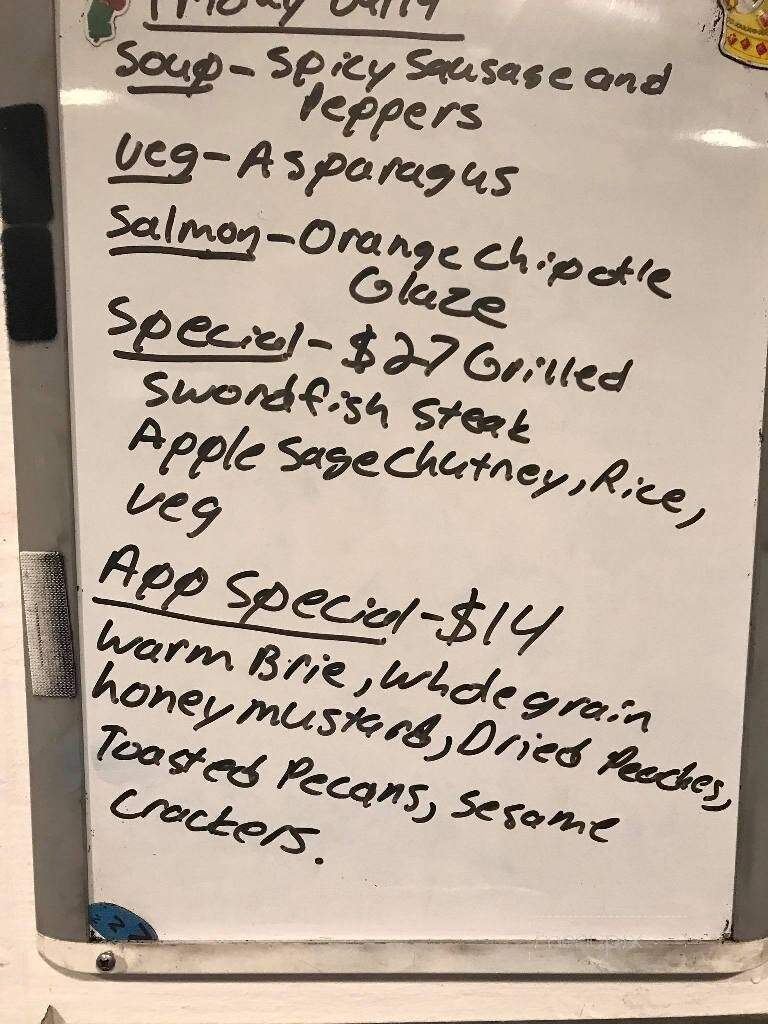 Friday
Soup - Spicy Sausage and
Peppers
Veg - Asparagus
Salmon - Orange Chipotle
Glaze
Special - $27 Grilled
Swordfish Steak
Apple Sage Chutney, Rice,
Veg
App Special - $14
Warm Brie, Whole grain
honey mustard, Dried Peaches,
Toasted Pecans, Sesame
Crackers.